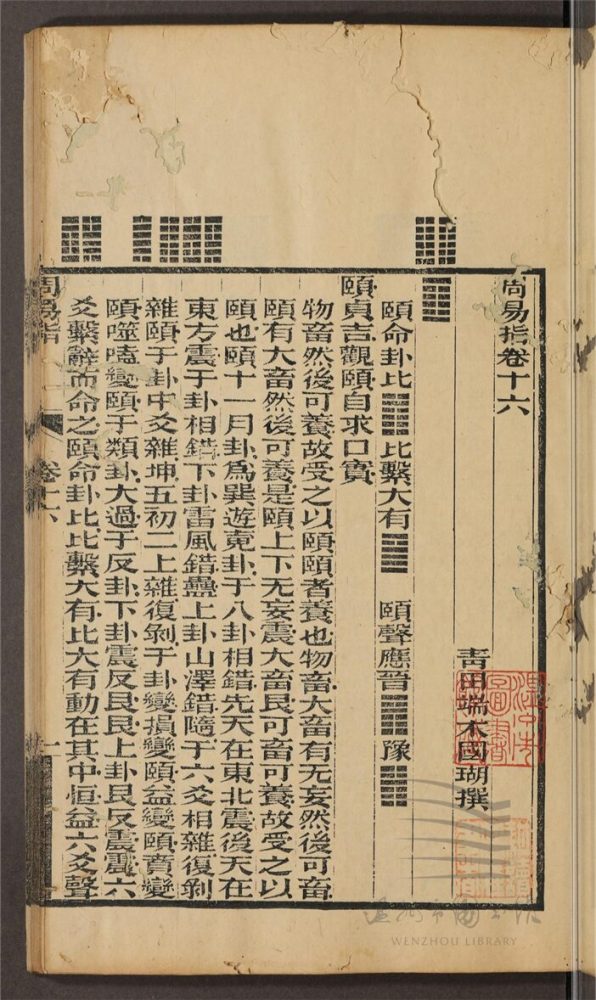 周易指卷十六
青田端木國瑚撰
頤命卦比䷇比繫大有䷍ 頤聲應晉䷢豫䷏
頤貞吉觀頤自求口實
物畜然後可養故受之以頤頤者養也物畜大畜有无妄然後可畜
頤有大畜然後可養是頤上下无妄震大畜艮可畜可養故受之以
頤也頤十一月卦爲巽遊䰟卦于八卦相錯先天在東北震後天在
東方震于卦相錯下卦雷風錯蠱上卦山澤錯隨于六爻相雜復剝
雜頤于卦中爻雜坤五初二上雜復剝于卦變損變頤益變頤賁變
頤噬嗑變頤于類卦大過于反卦下卦震反艮艮上卦艮反震震六
爻繫辭而命之頤命卦比比繫大有比大有動在其中恒益六爻聲
周易指
卷十六
一
WENZHOU LIBRARY